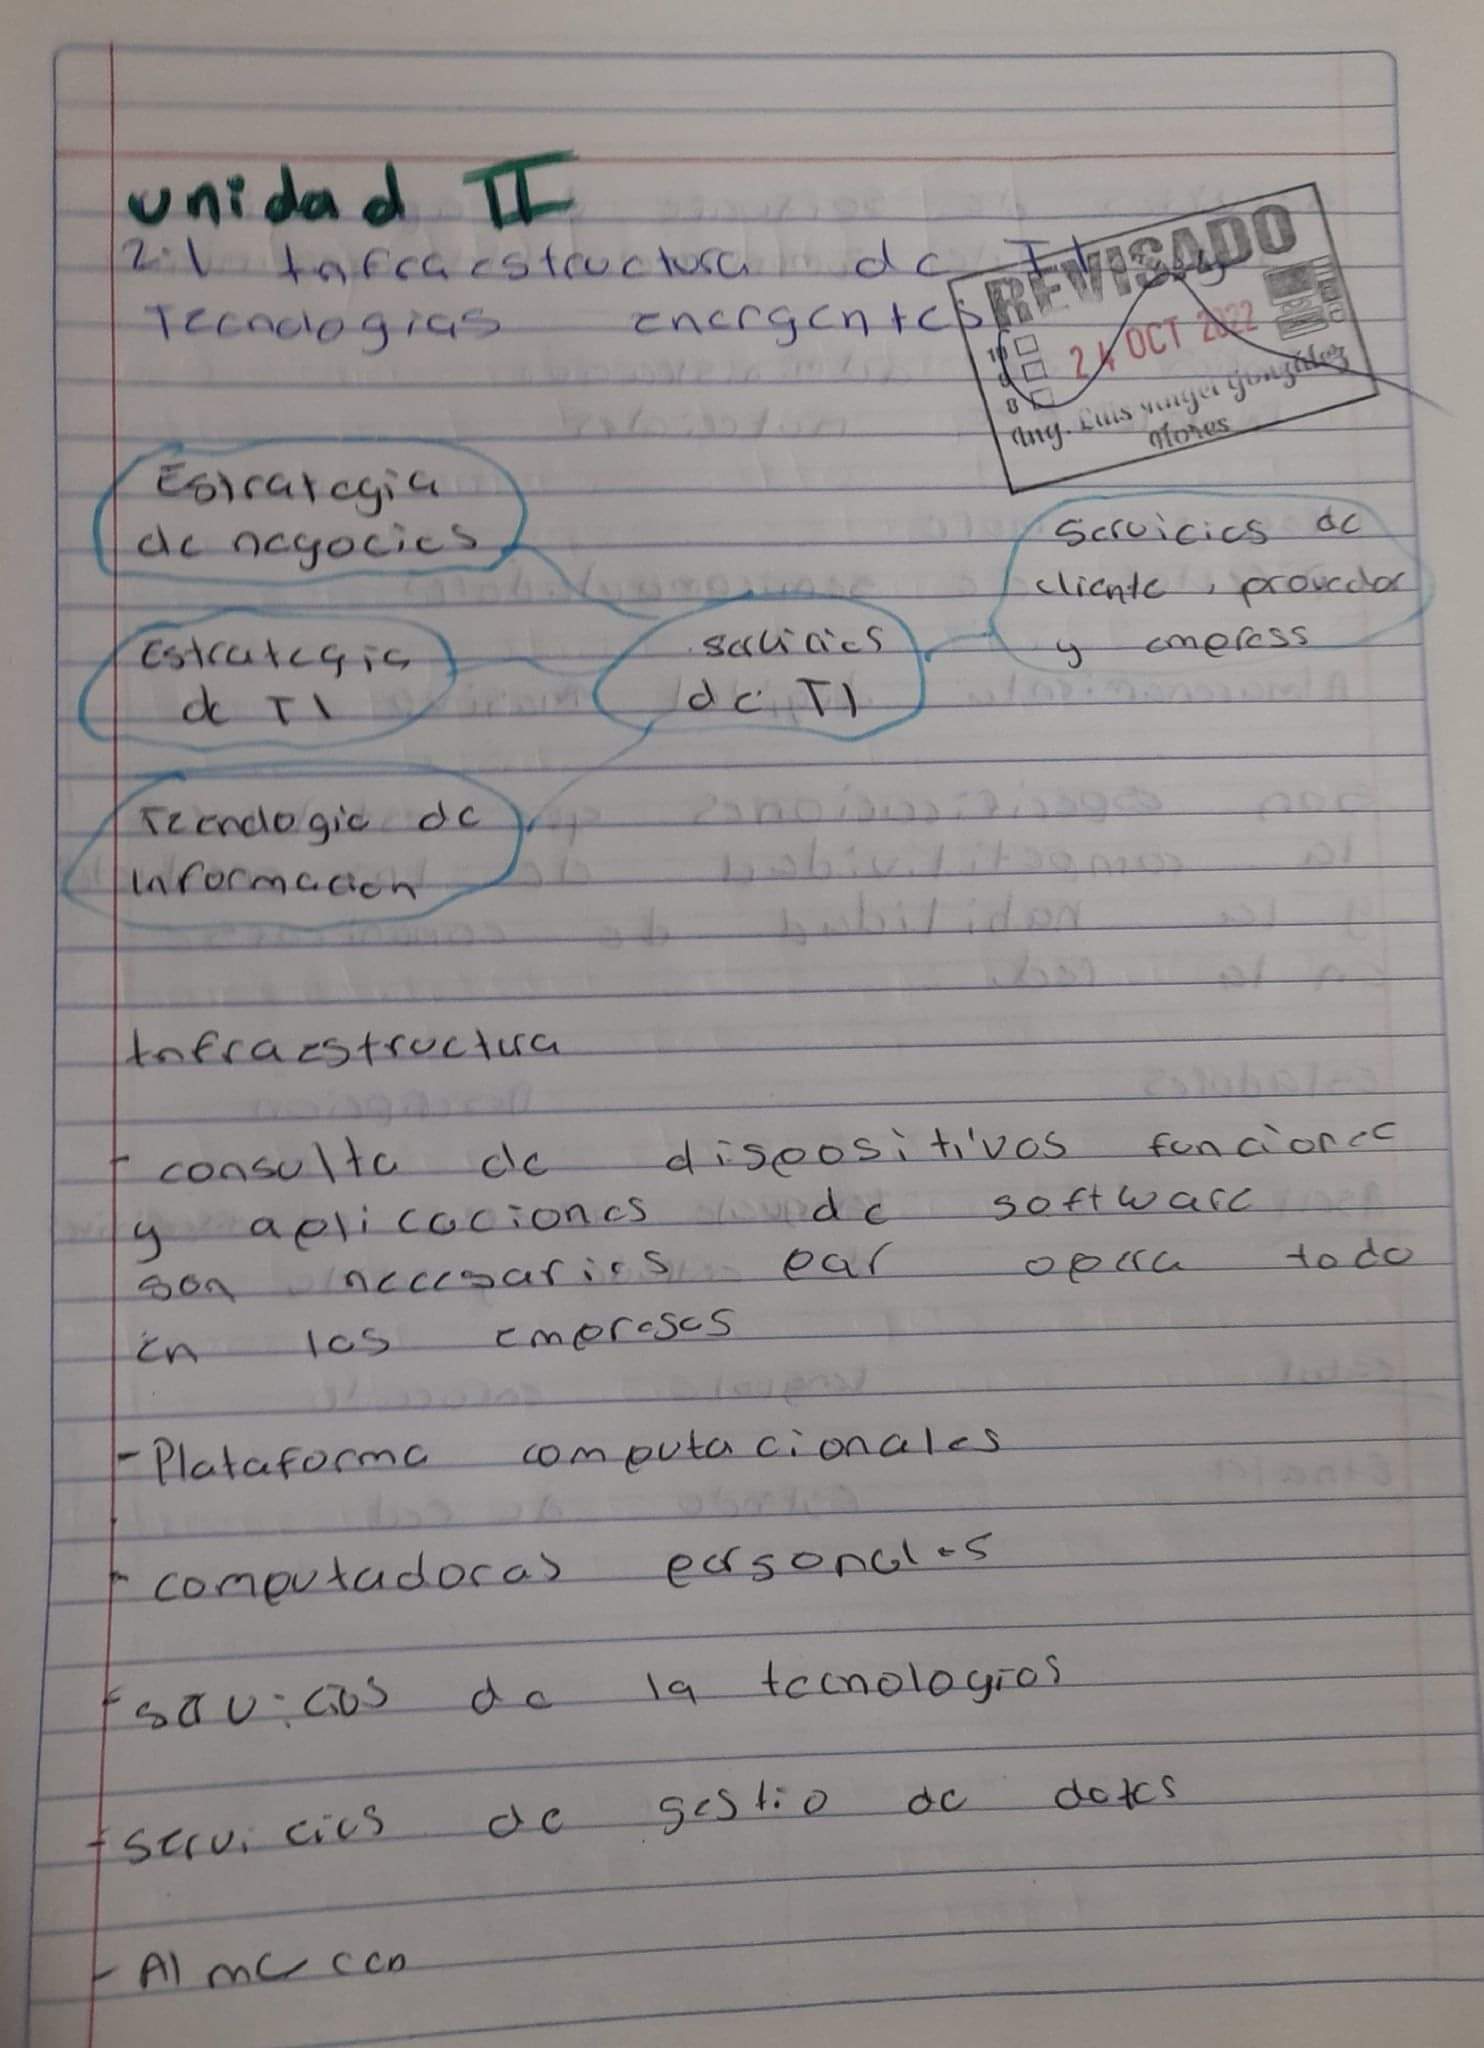 unidad II
2.1 Infraestructura de TI
Tecnologias Energentes
REVISADO
24 OCT 2022
10
9
8
Ing. Luis Angel González
Flores
Estrategia
de negocios
Servicios de
cliente, provedor
y empress
Estrategia
de TI
servicios
de TI
Tecnologia de
informacion
Infraestructura
- consulta de dispositivos funciones
y aplicaciones de software
son necesarios par opera todo
en las empresas
- Plataforma computacionales
- computadoras personales
- servicios de la tecnologios
- servicios de gestio de datos
- Almaccen